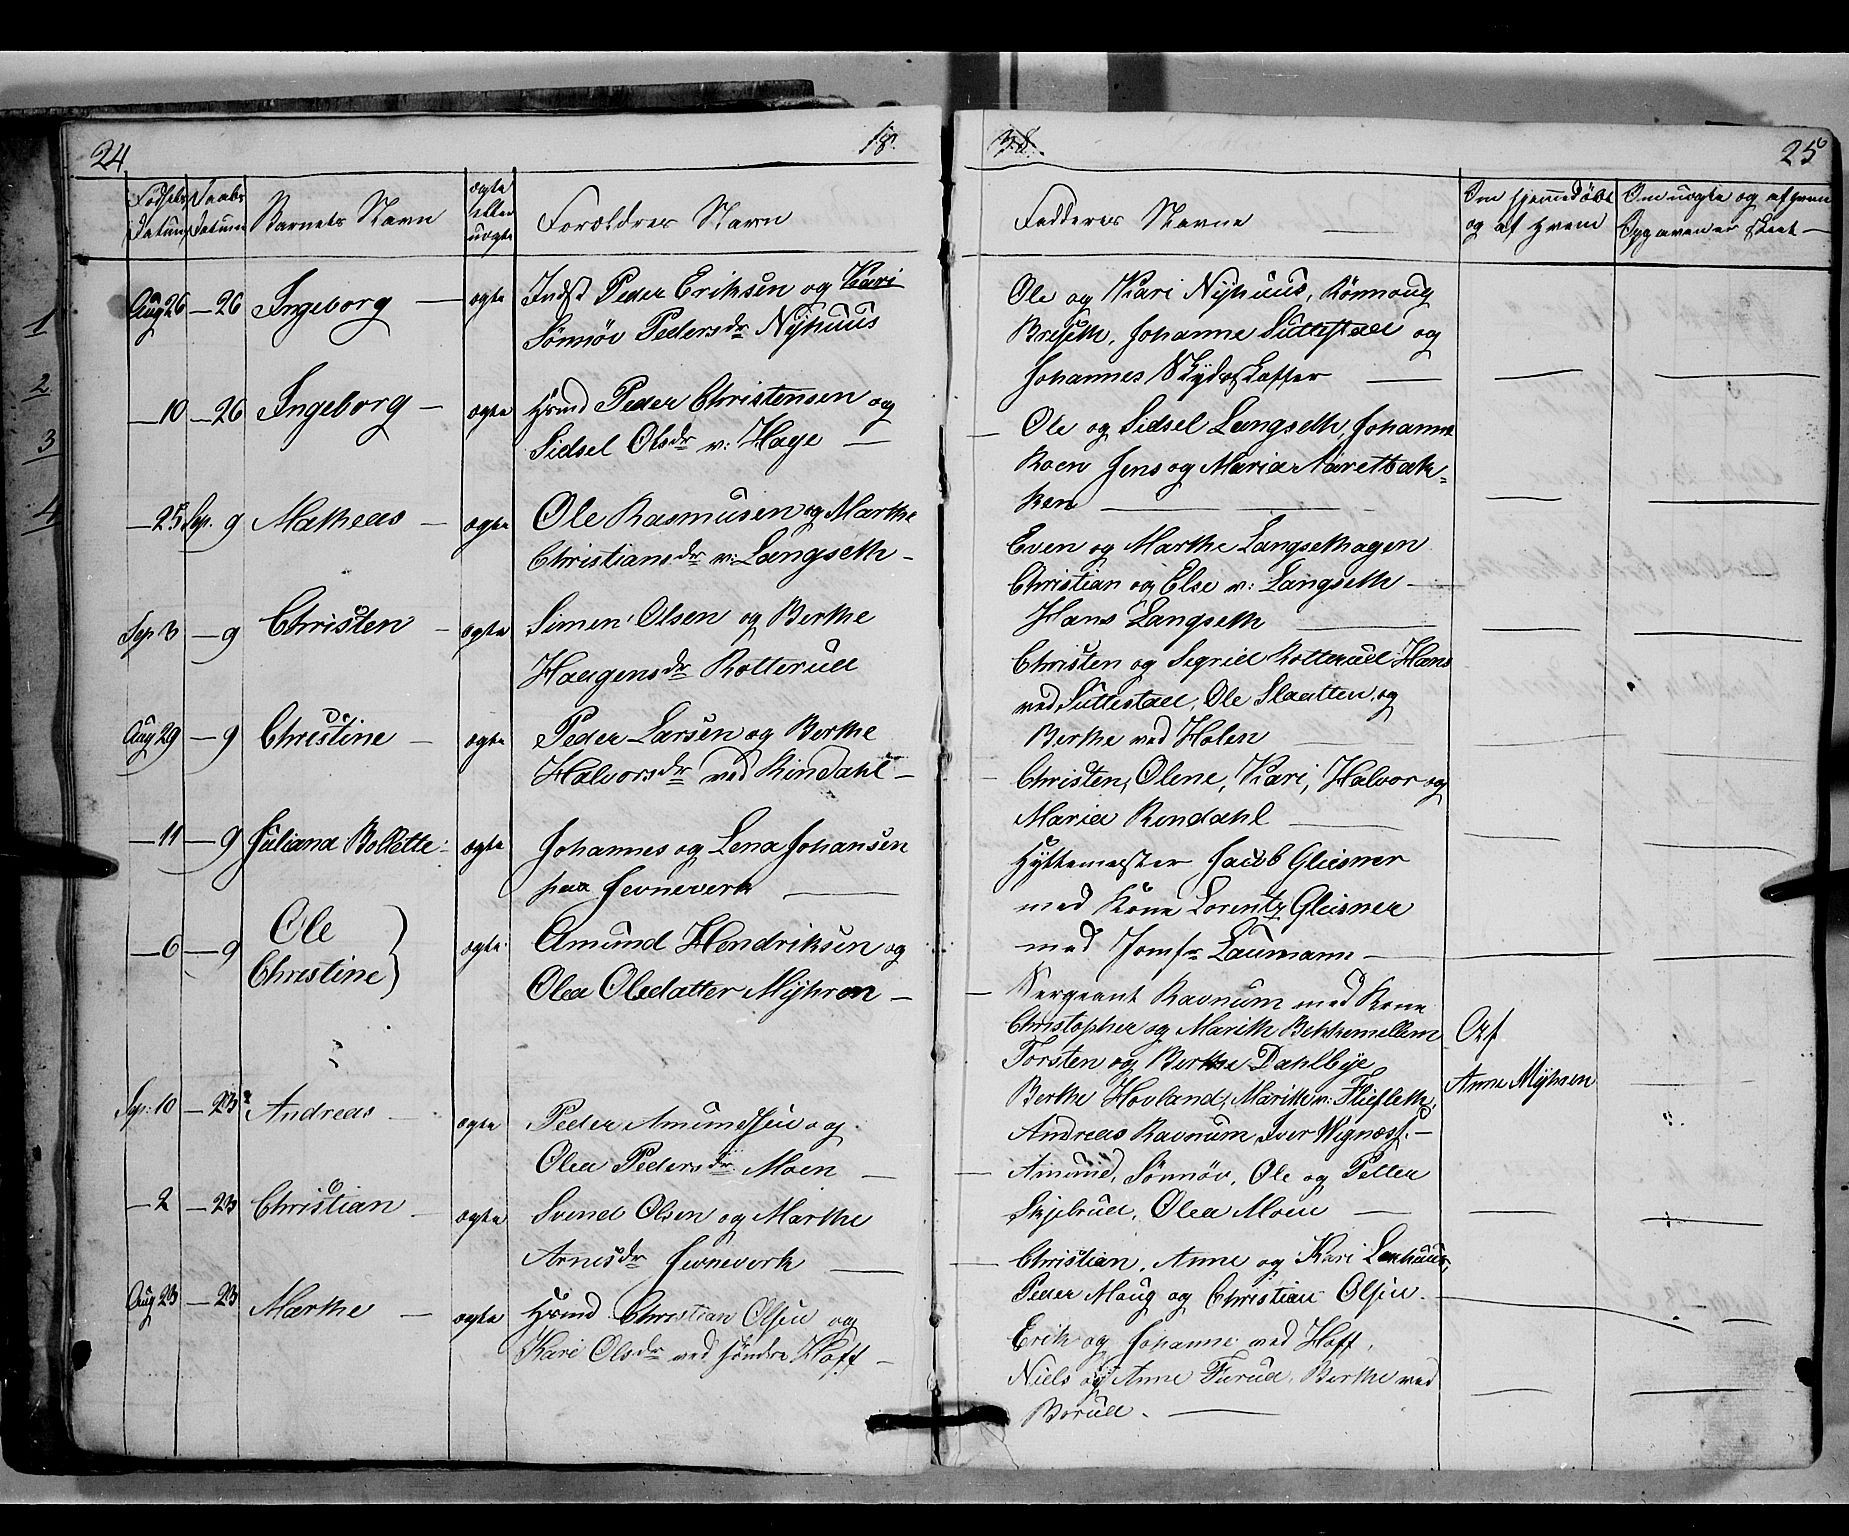 24
18
38.
25
Fødsels Datum
Daabs Datum
Barnets Navn
ægte eller uægte
Forældres Navn
Faddernes Navne
Om hjemmedøbt og af hvem
Om uægte og af hvem Opgaven er skeet
1
2
3
4
Aug 26 — 26 Ingeborg — ægte Indst Peder Eriksen og Kari
Sønnøv Pedersdr Nyhuus
Ole og Kari Nyhuus, Rønnoug
Bræseth, Johanne Suttestad og
Johannes Skydsskaffer —
— 10 — 26 Ingeborg — ægte Hmd Peder Christensen og
Sidsel Olsdr v: Hage —
Ole og Sidsel Langseth, Johanne
Roen Jens og Maria Aaretbak-
ken —
— 25 Sep. 9 Matheas — ægte Ole Rasmusen og Marthe
Christiansdr v: Langseth —
Even og Marthe Langsethagen
Christian og Else v: Langseth —
Hans Langseth —
Sep 3 — 9 Christen — ægte Simen Olsen og Berthe
Haagensdr Rotterud
Christen og Sigrid Rotterud Hans
ved Suttestad, Ole Slaatten og
Berthe ved Holen —
Aug 29 — 9 Christine — ægte Peder Larsen og Berthe
Halvorsdr ved Rindahl —
Christen, Olene, Kari, Halvor og
Maria Rindahl —
— 11 — 9 Juliana Bollette ægte Johannes og Lena Johansen
paa Jernverk —
Hyttemester Jacob Gleisner
med Kone Lorentz Gleisner
med Jomfr Laumann —
— 6 — 9 Ole
Christine } ægte Amund Hendriksen og
Olea Olsdatter Myhren —
Sergeant Ravnum med Kone
Christopher og Marith Bekkemellem
Torsten og Berthe Dahlbye
Berthe Hovland, Marith v:
Af
Anne Myhren
Sep: 10 — 23 Andreas — ægte Peder Amundsen og
Olea Pedersdr Moen —
Andreas Ravnum, Iver
Amund, Sønnøv, Ole og Petter
Skjelrud, Olea Moen —
— 2 — 23 Christian — ægte Svend Olsen og Marthe
Arnesdr Jernverk —
Christian, Anne og Kari
Peder Moug og Christian Olsen —
Aug 23 — 23 Marthe — ægte Hmd Christian Olsen og
Kari Olsdr ved søndre Hoff —
Erik og Johanne ved Hoff,
Niels og Anne Furud, Berthe ved
Borud —